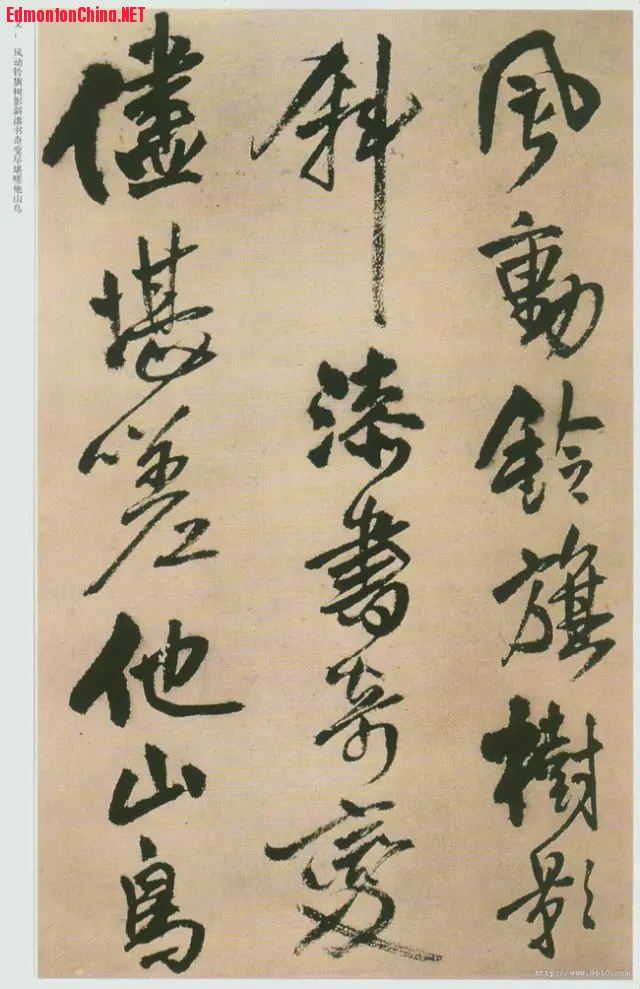 EdmontonChina.NET
文：风动铃旗树影斜漆书奇变尽堪嗟他山鸟
風動鈴旗樹影
斜漆書奇變
儘堪嗟他山鳥
http://www.9610.com